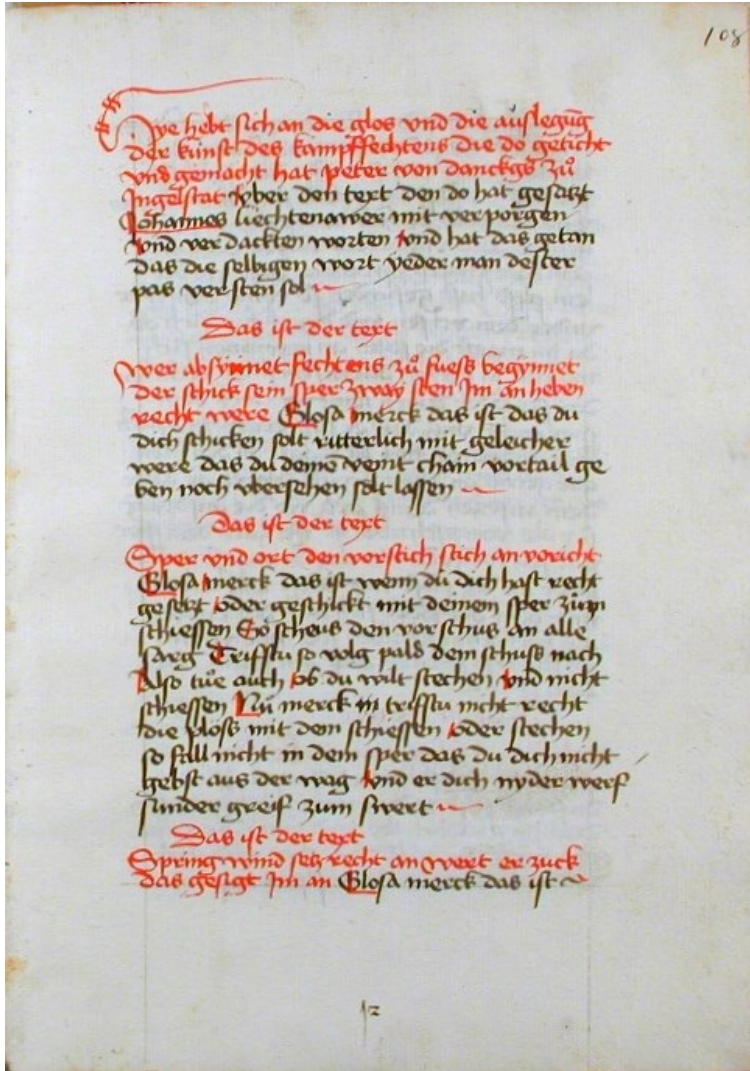 108
Hye hebt sich an die glos vnd die auslegūg
der kunst des kampffechtens die do geticht
vnd gemacht hat peter von danckgs zů
Ingelstat vber den text den do hat gesatzt
Johannes liechtenawer mit verporgen
vnd verdackten worten vnd hat das getan
das die selbigen wort yeder man dester
pas versten sol
Das ist der text
Wer absynnet fechtens zů fuess begynnet
der schick sein sper zway sten Im an heben
recht were Glosa merck das ist das du
dich schicken solt ritterlich mit geleicher
were das du deinē veint chain vortail ge
ben noch vbersehen solt lassen
Das ist der text
Sper vnd ort den vorstich stich an voricht
Glosa merck das ist wenn du dich hast recht
gesetzt oder geschickt mit deinem sper zům
schiessen So scheus den vorschus an alle
sarg Trifstu so volg pald dem schuss nach
Also tůe auch ob du wilt stechen vnd nicht
schiessen Nu merck trifstu nicht recht
die plöss mit dem schiessen oder stechen
so fall nicht in dem sper das du dich nicht
gebst aus der wag vnd er dich nyder werf
sunder greif zum swert
Das ist der text
Spring wind setz recht an wert er zuck
das gesigt Im an Glosa merck das ist